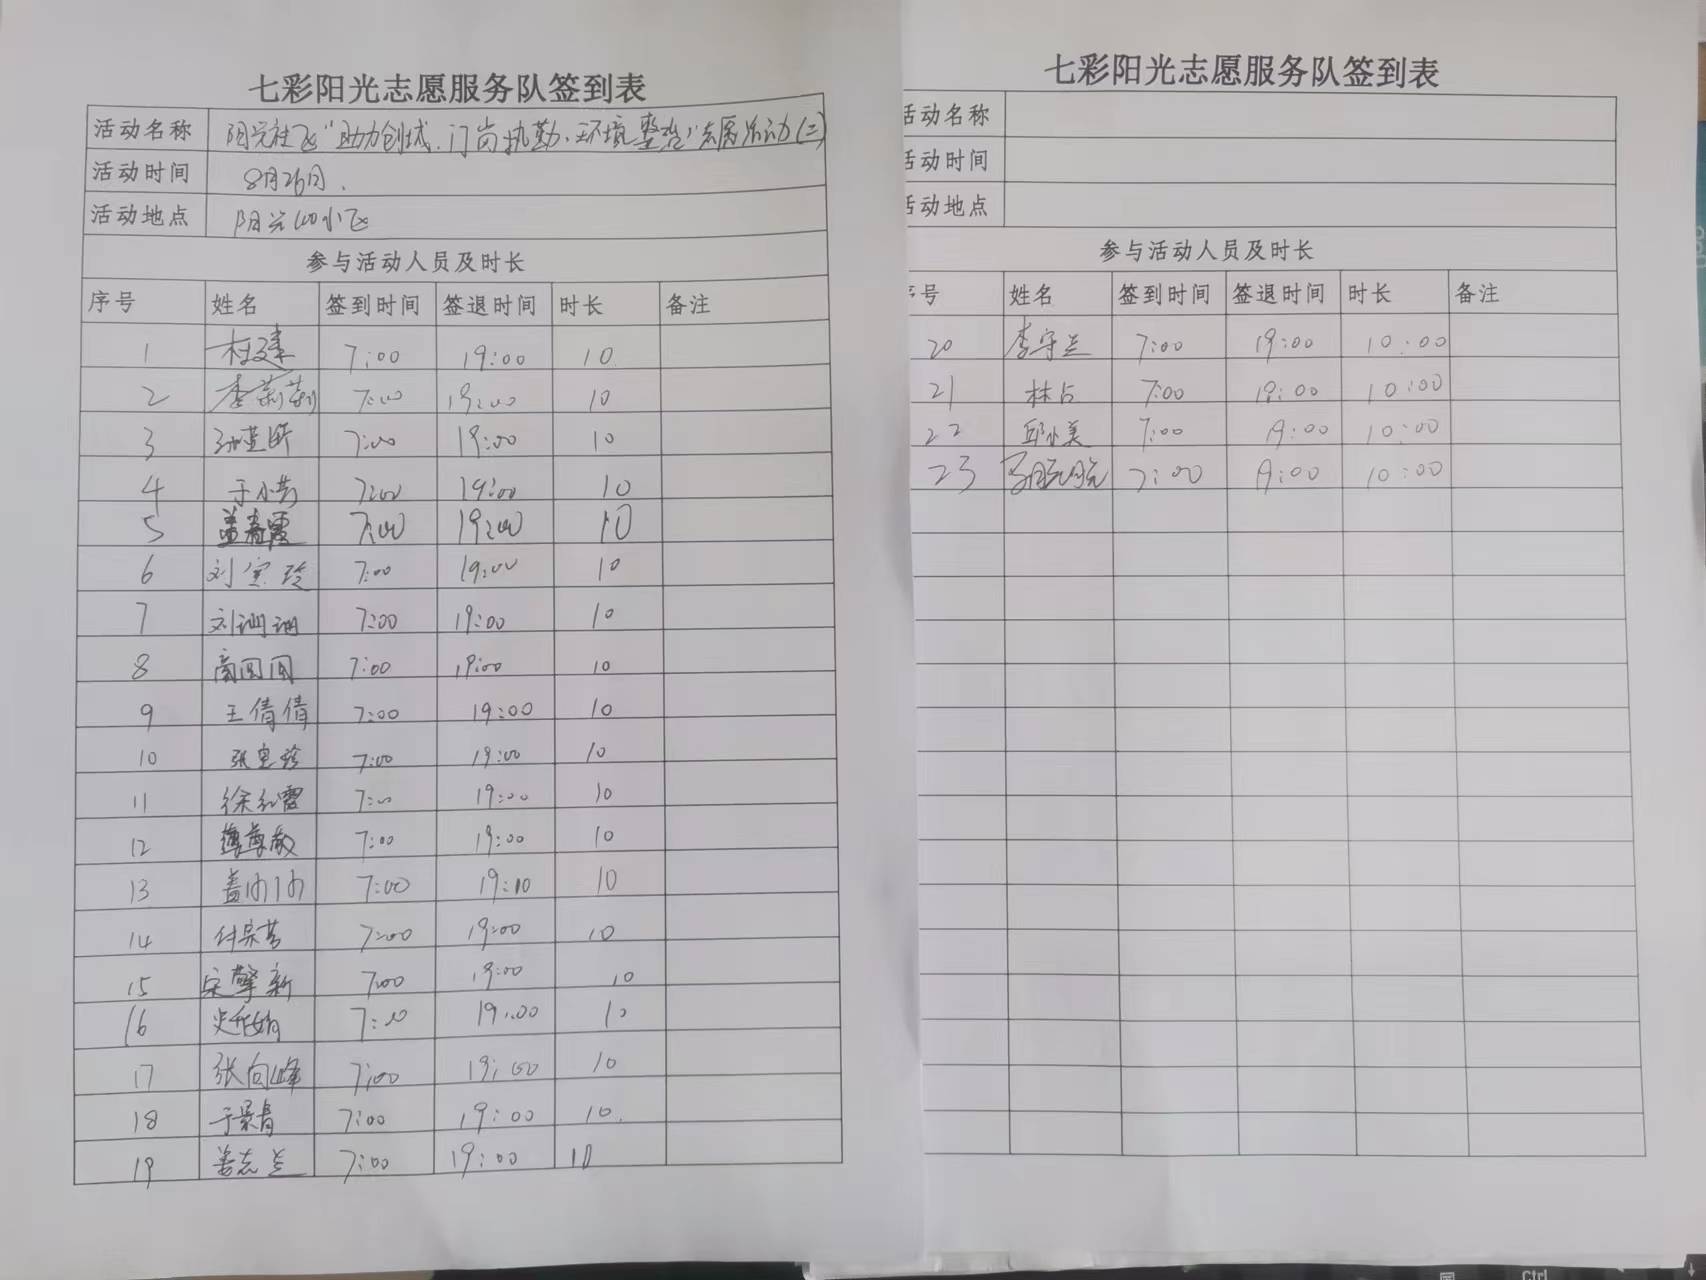 七彩阳光志愿服务队签到表
活动名称 阳光社区"助力创城、门岗执勤、环境整治"志愿活动(三)
活动时间 8月26日.
活动地点 阳光100小区
参与活动人员及时长
序号 姓名 签到时间 签退时间 时长 备注
1 杜建 7:00 19:00 10
2 李莉莉 7:00 19:00 10
3 7:00 19:00 10
4 于小芳 7:00 19:00 10
5 盖春霞 7:00 19:00 10
6 刘宝玲 7:00 19:00 10
7 刘训训 7:00 19:00 10
8 高圆圆 7:00 19:00 10
9 王倩倩 7:00 19:00 10
10 张宝珍 7:00 19:00 10
11 徐红霞 7:00 19:00 10
12 7:00 19:00 10
13 7:00 19:10 10
14 付景芳 7:00 19:00 10
15 宋擎新 7:00 19:00 10
16 7:00 19:00 10
17 张向峰 7:00 19:00 10
18 于景青 7:00 19:00 10.
19 姜志兰 7:00 19:00 10
七彩阳光志愿服务队签到表
活动名称
活动时间
活动地点
参与活动人员及时长
号 姓名 签到时间 签退时间 时长 备注
20 李守兰 7:00 19:00 10:00
21 林占 7:00 19:00 10:00
22 邱小美 7:00 19:00 10:00
23 7:00 19:00 10:00
Ctrl